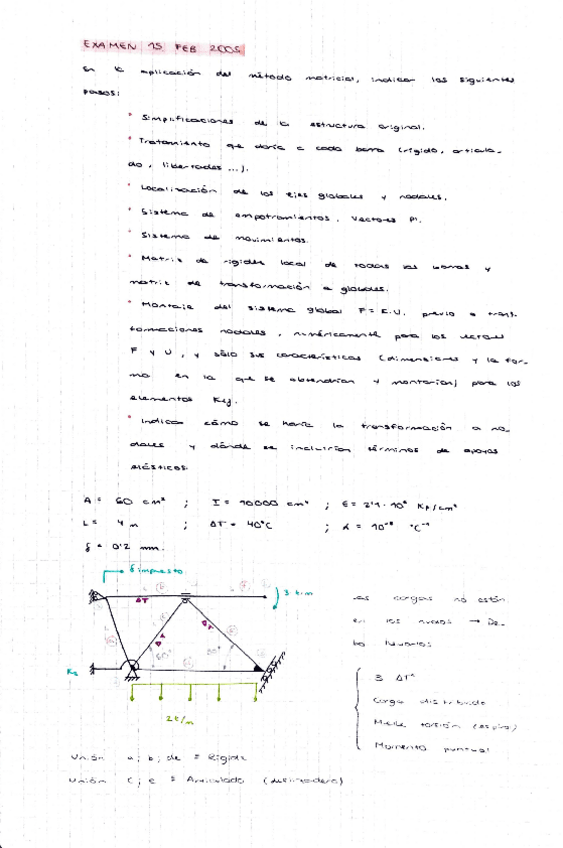 EXAMEN 15 FEB 2005
En la aplicación del método matricial, indicar los siguientes
pasos:
• Simplificaciones de la estructura original.
• Tratamiento que daría a cada barra (rígido, articula-
do, libertades ...).
• Localización de los ejes globales y nodales.
• Sistema de empotramientos. Vectores Pi.
• Sistema de movimientos.
• Matriz de rigidez local de todas las barras y
matriz de transformación a globales.
• Montaje del sistema global F = K.U, previo a trans-
formaciones nodales, numéricamente para los vectores
F y U, y sólo sus características (dimensiones y la for-
ma en la que se obtendrían y montarían) para los
elementos Kij.
• Indicar cómo se haría la transformación a no-
dales y dónde se incluirían términos de apoyos
elásticos.
A = 60 cm² ; I = 10000 cm⁴ ; E = 2'1·10⁶ Kp/cm²
L = 4 m ; ΔT = 40°C ; α = 10⁻⁵ °C⁻¹
δ = 0'2 mm.
δ impuesto
3 t·m
ΔT
Las cargas no están
en los nudos →
60°
3 ΔT°
Carga distribuida
Muelle torsión
Momento puntual
2t/m
Unión a; b; de = Rígido
Unión c; e = Articulado (deslizadera)